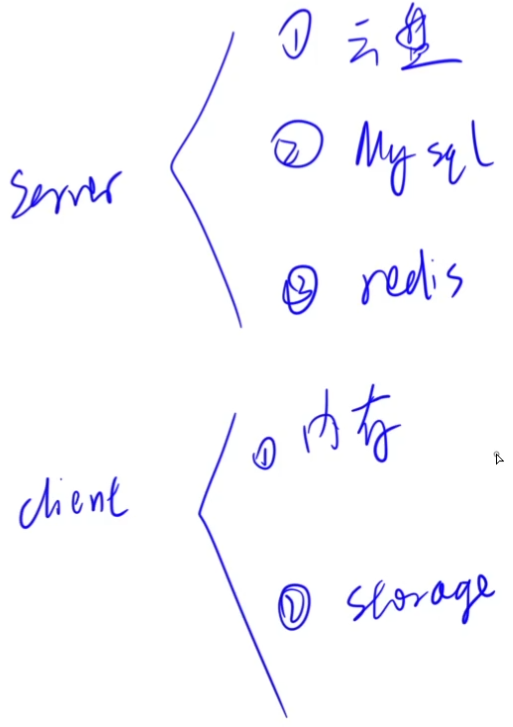 Server
① 云盘
② Mysql
③ redis
client
① 内存
② storage